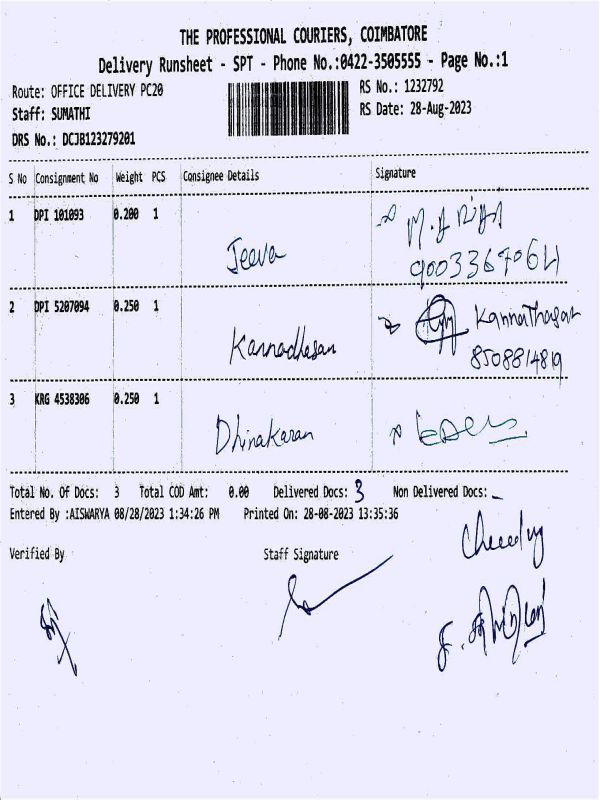 THE PROFESSIONAL COURIERS, COIMBATORE
Delivery Runsheet - SPT - Phone No.:0422-3505555 - Page No.:1
Route: OFFICE DELIVERY PC20
RS No.: 1232792
Staff: SUMATHI
RS Date: 28-Aug-2023
DRS No.: DCJB123279201
S No Consignment No Weight PCS Consignee Details Signature
1 DPI 101093 0.200 1
Jeeva
2 DPI 5207094 0.250 1
Kannadhasan Kannathasan
8508814819
3 KRG 4538306 0.250 1
Dhinakaran
Total No. Of Docs: 3 Total COD Amt: 0.00 Delivered Docs: 3 Non Delivered Docs: -
Entered By :AISWARYA 08/28/2023 1:34:26 PM Printed On: 28-08-2023 13:35:36
Verified By Staff Signature